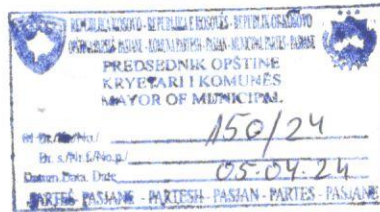 REPUBLIKA KOSOVO - REPUBLIKA E KOSOVËS - REPUBLIC OF KOSOVO
PREDSEDNIK OPŠTINE
KRYETARI I KOMUNËS
MAYOR OF MUNICIPAL
No/ 150/24
Br. s./Nr.f./No.p./
Datum, Data, Date 05.04.24
PARTEŠ PASJANE - PARTESH - PASJAN - PARTES - PASJANE